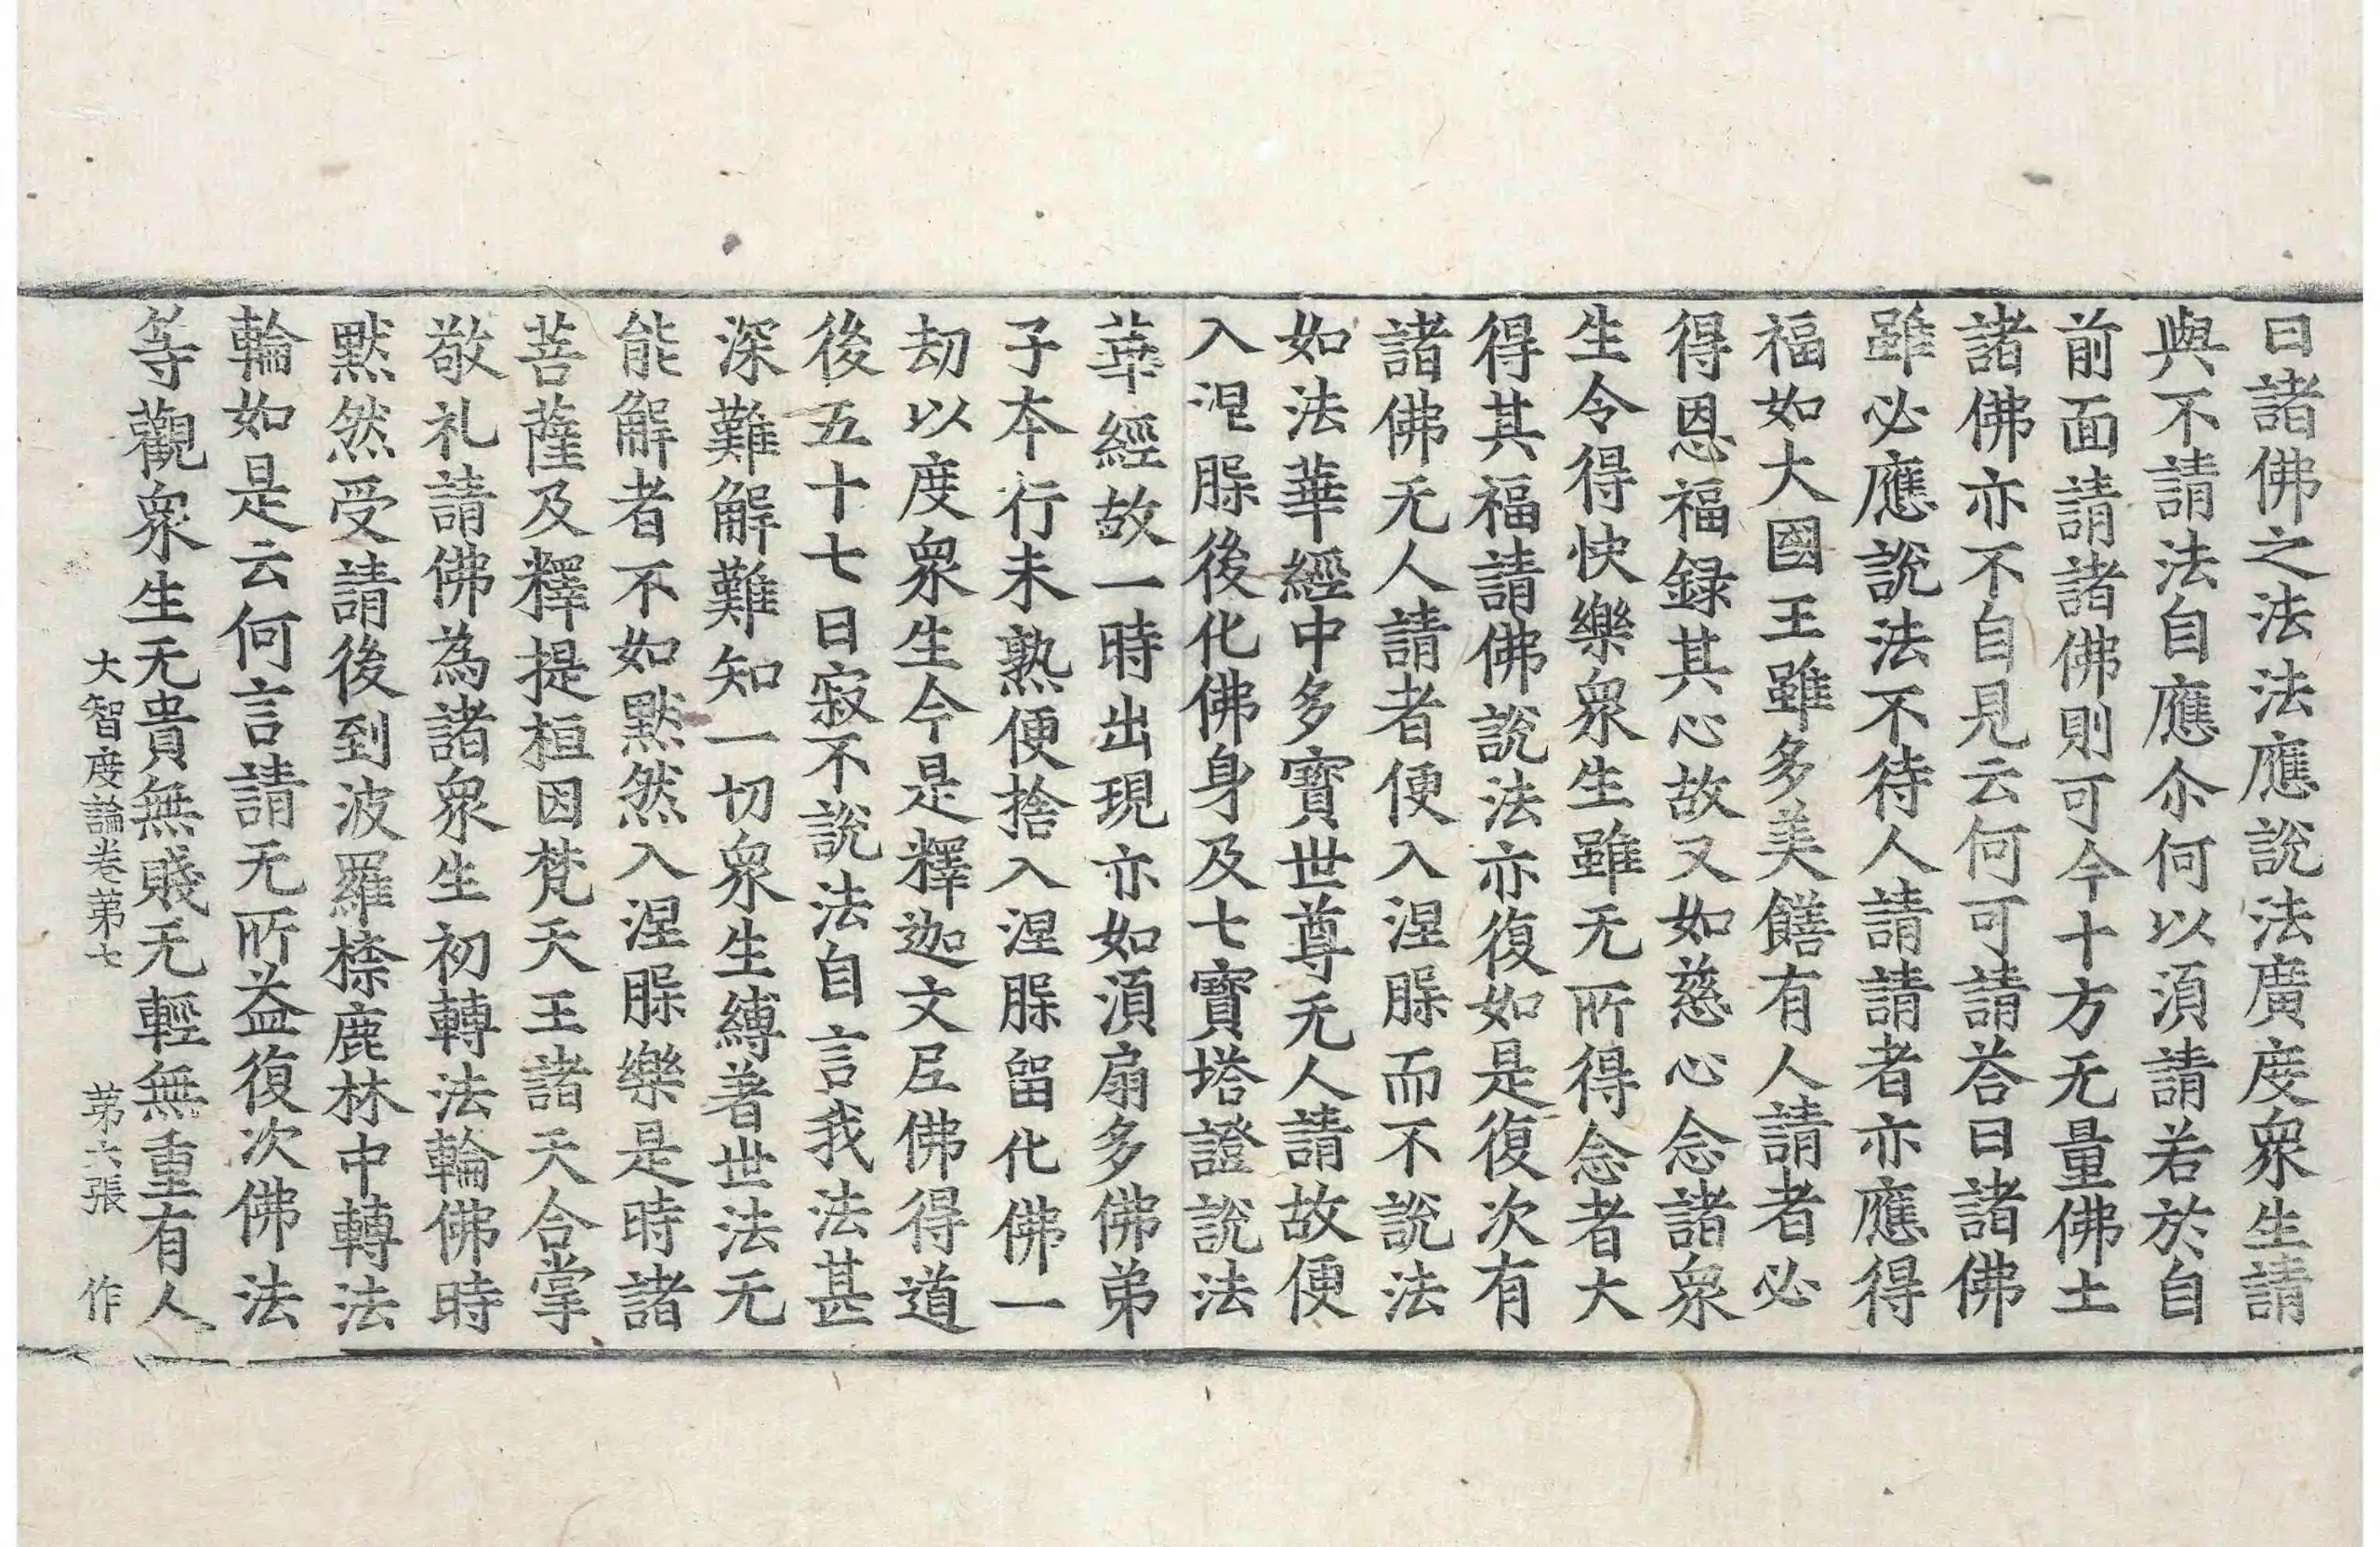 曰諸佛之法法應說法廣度衆生請
與不請法自應尒何以湏請若於自
前面請諸佛則可今十方无量佛土
諸佛亦不自見云何可請荅曰諸佛
雖必應說法不待人請請者亦應得
福如大國王雖多美饍有人請者必
得恩福録其心故又如慈心念諸衆
生令得快樂衆生雖无所得念者大
得其福請佛說法亦復如是復次有
諸佛无人請者便入涅脲而不說法
如法華經中多寶世尊无人請故便
入涅脲後化佛身及七寶塔證說法
華經故一時出現亦如湏扇多佛弟
子本行未熟便捨入涅脲留化佛一
劫以度衆生今是釋迦文尼佛得道
後五十七日寂不說法自言我法甚
深難解難知一切衆生縛著世法无
能解者不如默然入涅脲樂是時諸
菩薩及釋提桓因梵天王諸天合掌
敬礼請佛為諸衆生初轉法輪佛時
默然受請後到波羅㮈鹿林中轉法
輪如是云何言請无所益復次佛法
等觀衆生无貴無賤无輕無重有人
大智度論卷苐七 苐六張 作